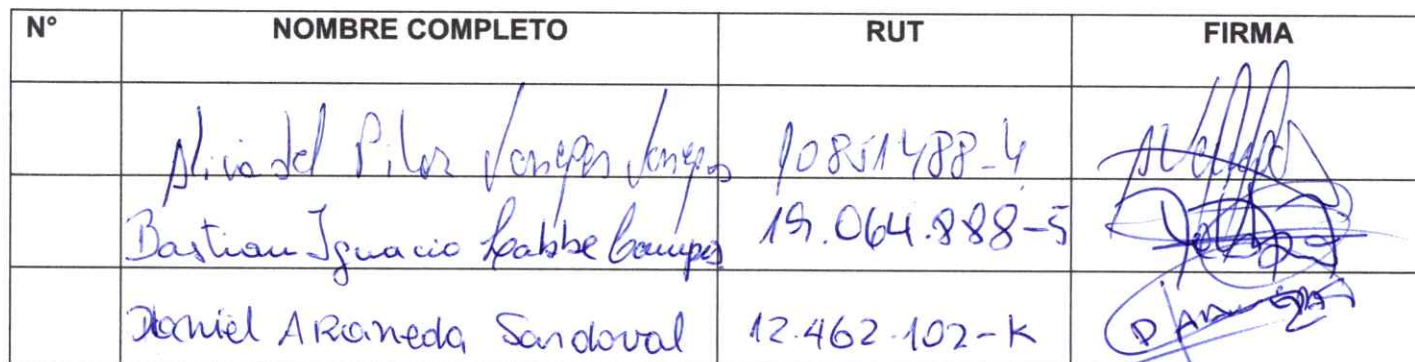 N° NOMBRE COMPLETO RUT FIRMA
Alicia del Pilar Vanegas Vanegas 10851488-4
Bastian Ignacio Labbe Campos 19.064.888-5
Daniel Araneda Sandoval 12.462.102-K